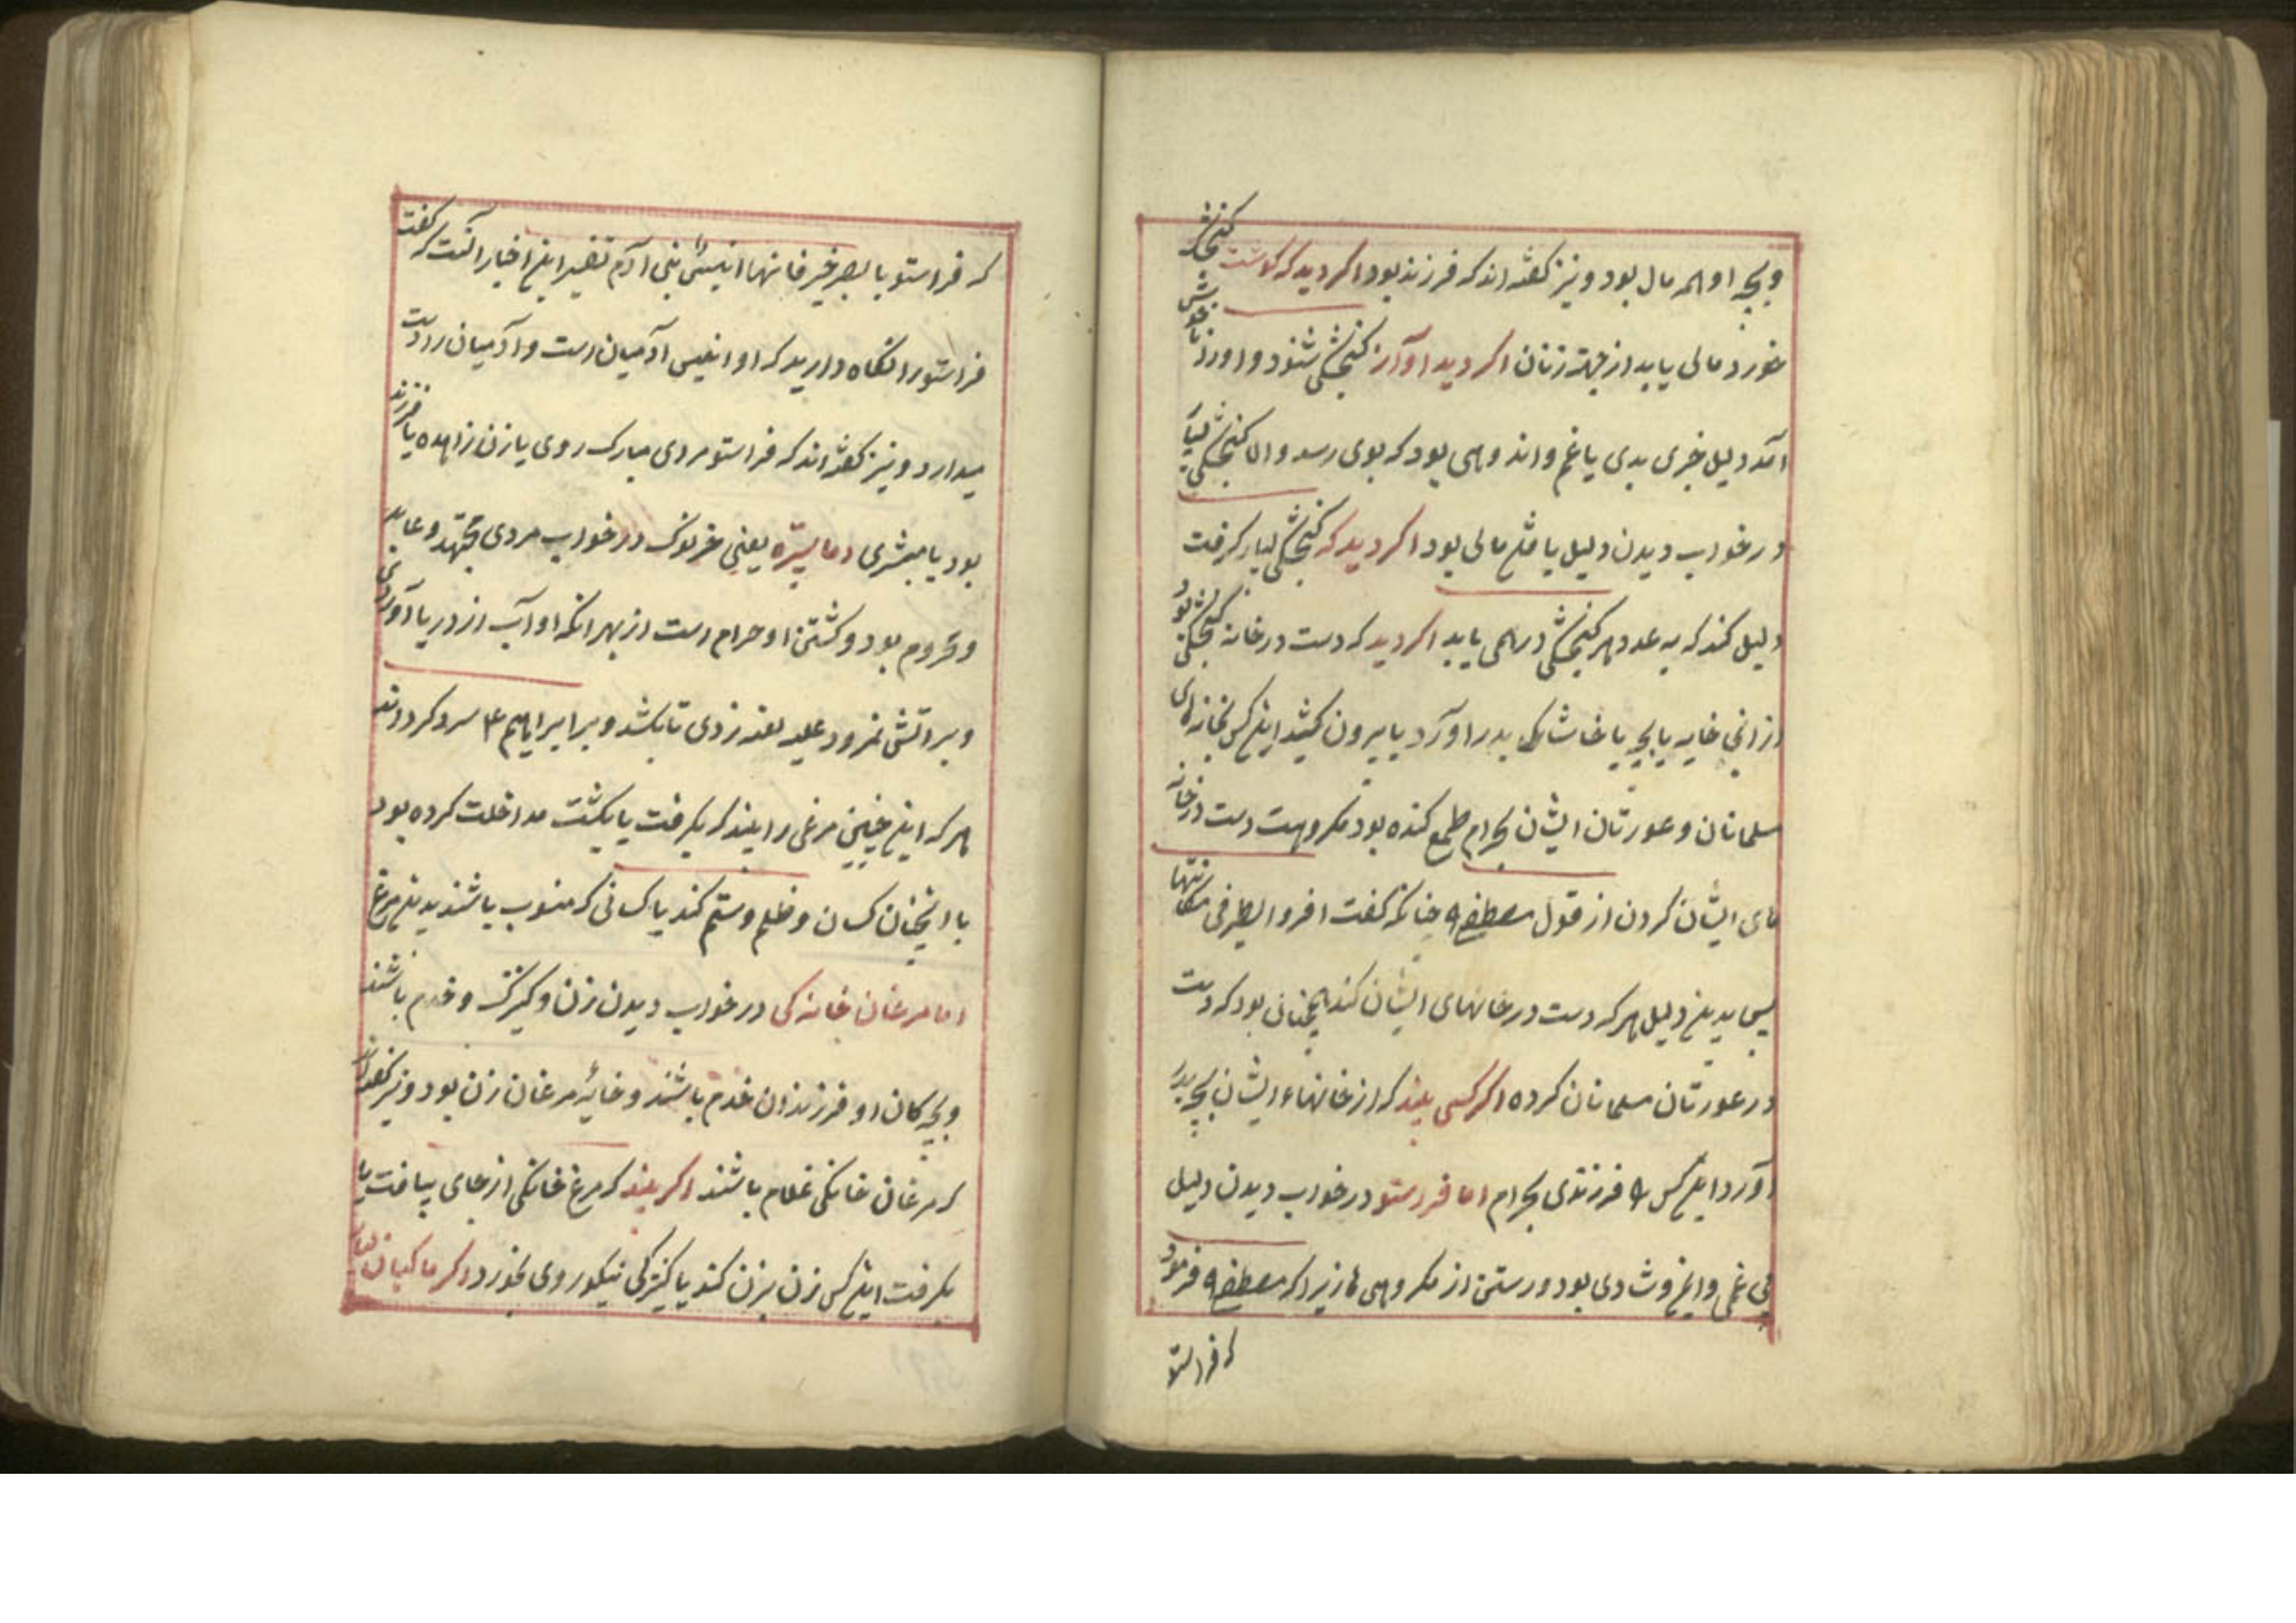 وبچه او همه مال بود و نیز کفته اند که فرزند بود اکر دید که کوشت کنجشک
خورد مالی یابد از جهة زنان اکر دید اوآز کنجشکی شنود و اورا ناخوش
آمد دلیل خبری بدی یا غم و اندوهی بود که بوی رسد و الا کنجشکی
در خواب دیدن دلیل یافتن مالی بود اکر دید که کنجشکی بسیار کرفت
دلیل کند که به عدد هر کنجشکی درهمی یابد اکر دید که دست در خانه کنجشکی بود
از انجا خایه یا بچه یا خاشاک بدر اورد یا بیرون کشید اینکس بخانهای
مسلمانان و عورتان ایشان بحرام طمع کننده بود مکروهست دست در خانه
های ایشان کردن از قول مصطفی چنانکه کفت اقروا الطیر فی مکانتها
پس بدین دلیل هر که دست در خانهای ایشان کند همچنان بود که دست
در عورتان مسلمانان کرده اکر کسی بیند که از خانهاء ایشان بچه بدر
آورد اینکس را فرزندی بحرام اما فرستو در خواب دیدن دلیل
بی غمی و شادی بود و رستن از مکروهی ها زیرا که مصطفی فرمود
که فراستو
که فراستو یا ابصر خیر خانها انیس بنی آدم تفسیر این اخبار آنست که کفت
فراستو را نکاه دارید که او انیس آدمیان است و آدمیان را دوست
میدارد و نیز کفته اند که فراستو مردی مبارک روی یا زن زاهده یا فرزند
بود یا مبشری اما یعنی در خواب مردی مجتهد و عابد
و محروم بود و کشتن او حرام است از بهر انکه او آب از دریا آوردی
و بر آتش نمرود علیه لعنه زدی تا بکشد و بر ابراهیم ۴ سرد کرداند
هر که این چنین مرغی را بیند که بکرفت یا بکشت مداخلت کرده بود
با انچنان کسان و ظلم و ستم کند یا کسانی که منسوب باشند بدین مرغ
اما مرغان خانه کی در خواب دیدن زن و کنیزک و خدم باشند
و بچه کان او فرزندان خدم باشند و خایهٔ مرغان زن بود و نیز کفته اند
که مرغان خانکی غلام باشند اکر بیند که مرغ خانکی از جای بیافت یا
بکرفت اینکس زن بزن کند یا کنیزکی نیکو روی بخرد اکر ماکیان